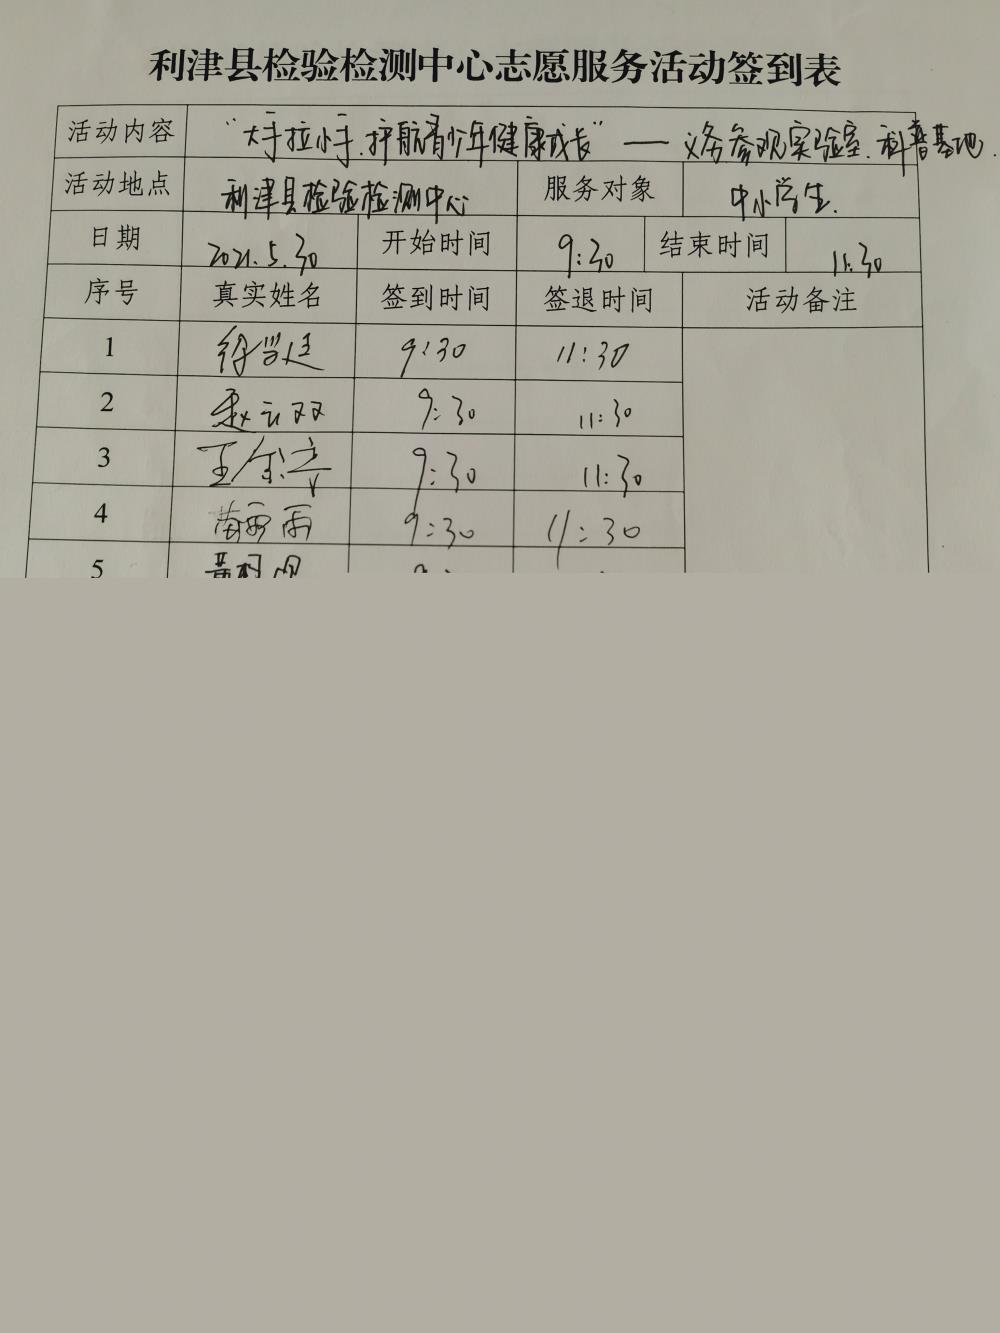 利津县检验检测中心志愿服务活动签到表
活动内容 "大手拉小手.护航青少年健康成长"——义务参观实验室.科普基地.
活动地点 利津县检验检测中心 服务对象 中小学生.
日期 2021.5.30 开始时间 9:30 结束时间 11:30
序号 真实姓名 签到时间 签退时间 活动备注
1 9:30 11:30
2 赵云双 9:30 11:30
3 9:30 11:30
4 苗雨雨 9:30 11:30
5